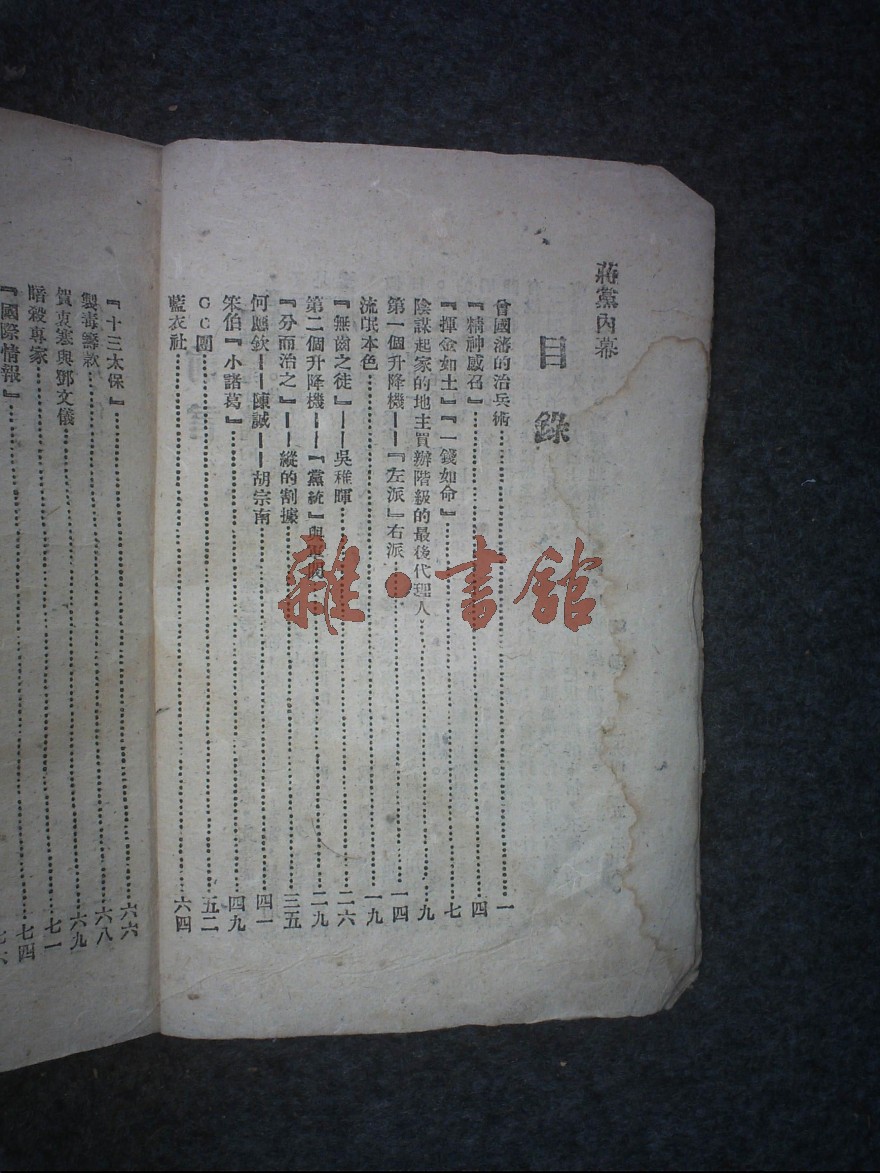 蔣黨內幕
目錄
曾國藩的治兵術⋯⋯一
『精神感召』⋯⋯四
『揮金如土』『一錢如命』⋯⋯七
陰謀起家的地主買辦階級的最後代理人⋯⋯九
第一個升降機——『左派』右派⋯⋯一四
流氓本色⋯⋯一九
『無齒之徒』——吳稚暉⋯⋯二六
第二個升降機——『黨統』與軍閥⋯⋯二九
『分而治之』——縱的割據⋯⋯三五
何應欽——陳誠——胡宗南⋯⋯四一
笨伯『小諸葛』⋯⋯四九
CC團⋯⋯五二
藍衣社⋯⋯六四
『十三太保』⋯⋯六六
製毒籌款⋯⋯六八
賀衷寒與鄧文儀⋯⋯六九
暗殺專家⋯⋯七一
『國際情報』⋯⋯七四
雜·書館